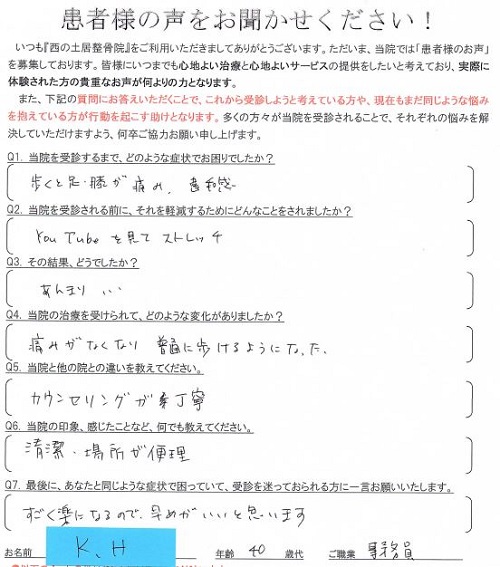 患者様の声をお聞かせください！
いつも『西の土居整骨院』をご利用いただきましてありがとうございます。ただいま、当院では「患者様のお声」
を募集しております。皆様にいつまでも心地よい治療と心地よいサービスの提供をしたいと考えており、実際に
体験された方の貴重なお声が何よりの力となります。
また、下記の質問にお答えいただくことで、これから受診しようと考えている方や、現在もまだ同じような悩み
を抱えている方が行動を起こす助けとなります。多くの方々が当院を受診されることで、それぞれの悩みを解
決していただけますよう、何卒ご協力お願い申し上げます。
Q1. 当院を受診するまで、どのような症状でお困りでしたか？
歩くと足・膝が痛み、違和感
Q2. 当院を受診される前に、それを軽減するためにどんなことをされましたか？
YouTubeを見てストレッチ
Q3. その結果、どうでしたか？
あんまり
Q4. 当院の治療を受けられて、どのような変化がありましたか？
痛みがなくなり 普通に歩けるようになった.
Q5. 当院と他の院との違いを教えてください。
カウンセリングが丁寧
Q6. 当院の印象、感じたことなど、何でも教えてください。
清潔・場所が便理
Q7. 最後に、あなたと同じような症状で困っていて、受診を迷っておられる方に一言お願いいたします。
すごく楽になるので、早めがいいと思います
お名前 K、H 年齢 40 歳代 ご職業 事務員